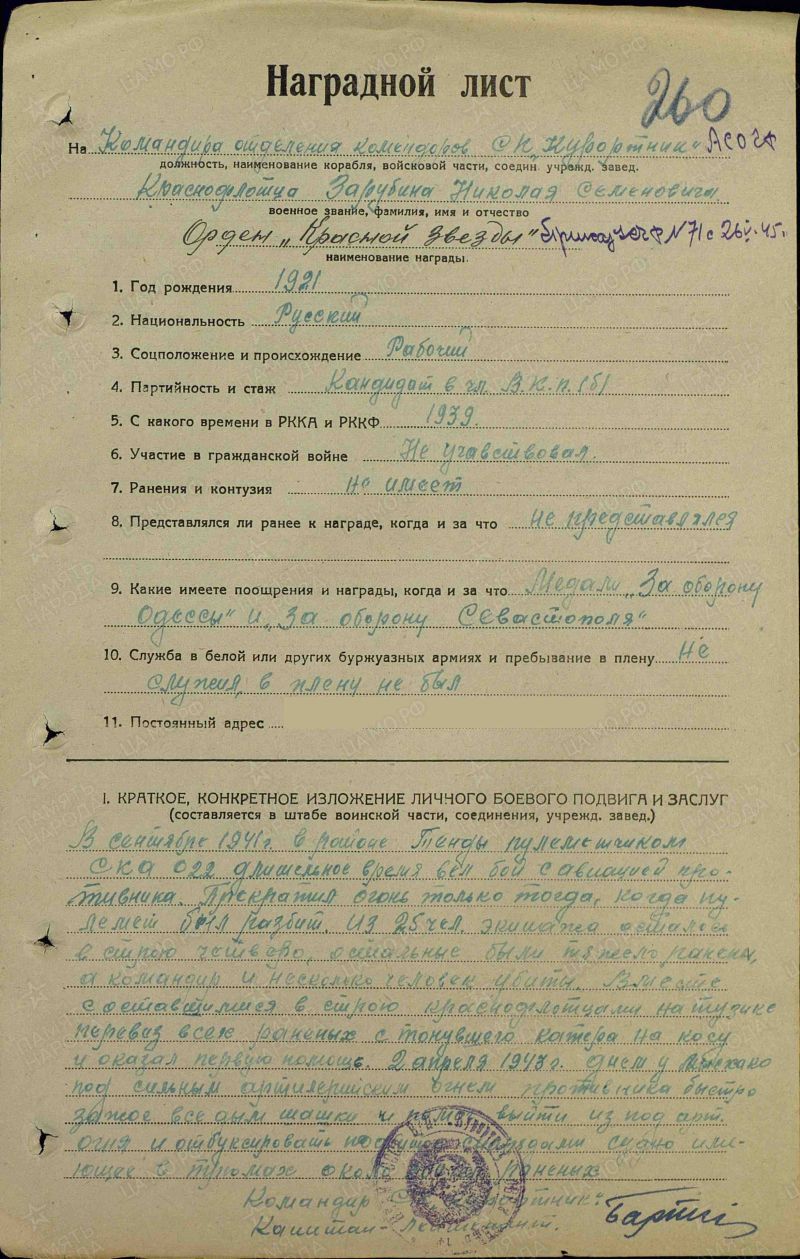 Наградной лист
260
На Командира отделения комендоров СК „Курортник“ АСО ЧФ
должность, наименование корабля, войсковой части, соедин. учрежд. завед.
Краснофлотца Зарубина Николая Семеновича
военное звание, фамилия, имя и отчество
Орден „Красной звезды“ Приказ ЧФ N 71 с 26 45г.
наименование награды.
1. Год рождения 1921
2. Национальность Русский
3. Соцположение и происхождение Рабочий
4. Партийность и стаж Кандидат в чл. В.К.П.(б)
5. С какого времени в РККА и РККФ 1939.
6. Участие в гражданской войне Не учавствовал.
7. Ранения и контузия Не имеет
8. Представлялся ли ранее к награде, когда и за что не представлялся
9. Какие имеете поощрения и награды, когда и за что Медали „За оборону
Одессы“ и „За оборону Севастополя“
10. Служба в белой или других буржуазных армиях и пребывание в плену Не
служил, в плену не был
11. Постоянный адрес
I. КРАТКОЕ, КОНКРЕТНОЕ ИЗЛОЖЕНИЕ ЛИЧНОГО БОЕВОГО ПОДВИГА И ЗАСЛУГ
(составляется в штабе воинской части, соединения, учрежд. завед.)
В сентябре 1941г. в районе Тенды пулеметчиком
СКА 022 длительное время вел бой с авиацией про-
тивника. Прекратил огонь только тогда, когда пу-
лемет был разбит. Из 25 чел. экипажа осталось
в строю четверо, остальные были тяжело ранены,
а командир и несколько человек убиты. Вместе
с оставшимися в строю краснофлотцами на тузике
перевез всех раненых с тонувшего катера на косу
и оказал первую помощь. 2 апреля 1943г. днем у Мысхако
под сильным артилерийским огнем противника быстро
зажег все дым шашки и помог выйти из под арт.
огня и отбуксировать судно име-
ющее в трюмах около раненых
Командир СК „Курортник“
Капитан-Лейтенант.